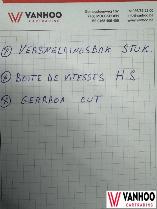 VANHOO
CARTRADING
① VERSNELLINGSBAK STUK.
② BOITE DE VITESSES H.S
③ GEARBOX OUT
VANHOO
CARTRADING